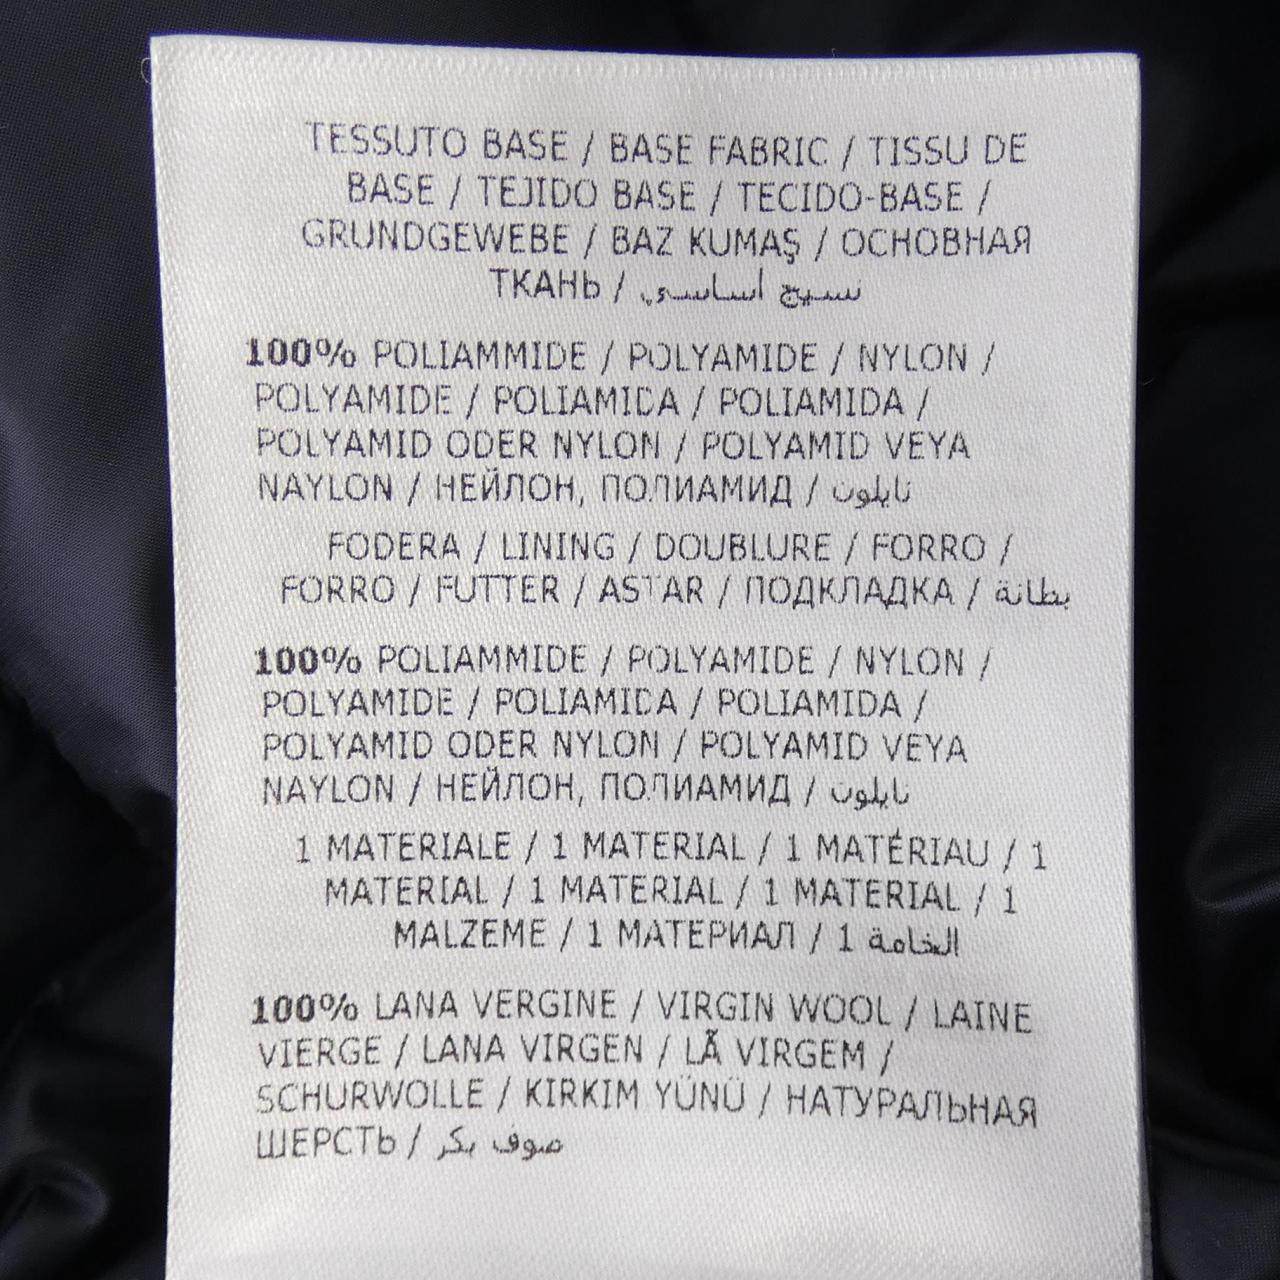 TESSUTO BASE / BASE FABRIC / TISSU DE
BASE / TEJIDO BASE / TECIDO-BASE /
GRUNDGEWEBE / BAZ KUMAŞ / ОСНОВНАЯ
ТКАНЬ / نسيج أساسي
100% POLIAMMIDE / POLYAMIDE / NYLON /
POLYAMIDE / POLIAMIDA / POLIAMIDA /
POLYAMID ODER NYLON / POLYAMID VEYA
NAYLON / НЕЙЛОН, ПОЛИАМИД / نايلون
FODERA / LINING / DOUBLURE / FORRO /
FORRO / FUTTER / ASTAR / ПОДКЛАДКА / بطانة
100% POLIAMMIDE / POLYAMIDE / NYLON /
POLYAMIDE / POLIAMIDA / POLIAMIDA /
POLYAMID ODER NYLON / POLYAMID VEYA
NAYLON / НЕЙЛОН, ПОЛИАМИД / نايلون
1 MATERIALE / 1 MATERIAL / 1 MATÉRIAU / 1
MATERIAL / 1 MATERIAL / 1 MATERIAL / 1
MALZEME / 1 МАТЕРИАЛ / 1 الخامة
100% LANA VERGINE / VIRGIN WOOL / LAINE
VIERGE / LANA VIRGEN / LÃ VIRGEM /
SCHURWOLLE / KIRKIM YÜNÜ / НАТУРАЛЬНАЯ
ШЕРСТЬ / صوف بكر